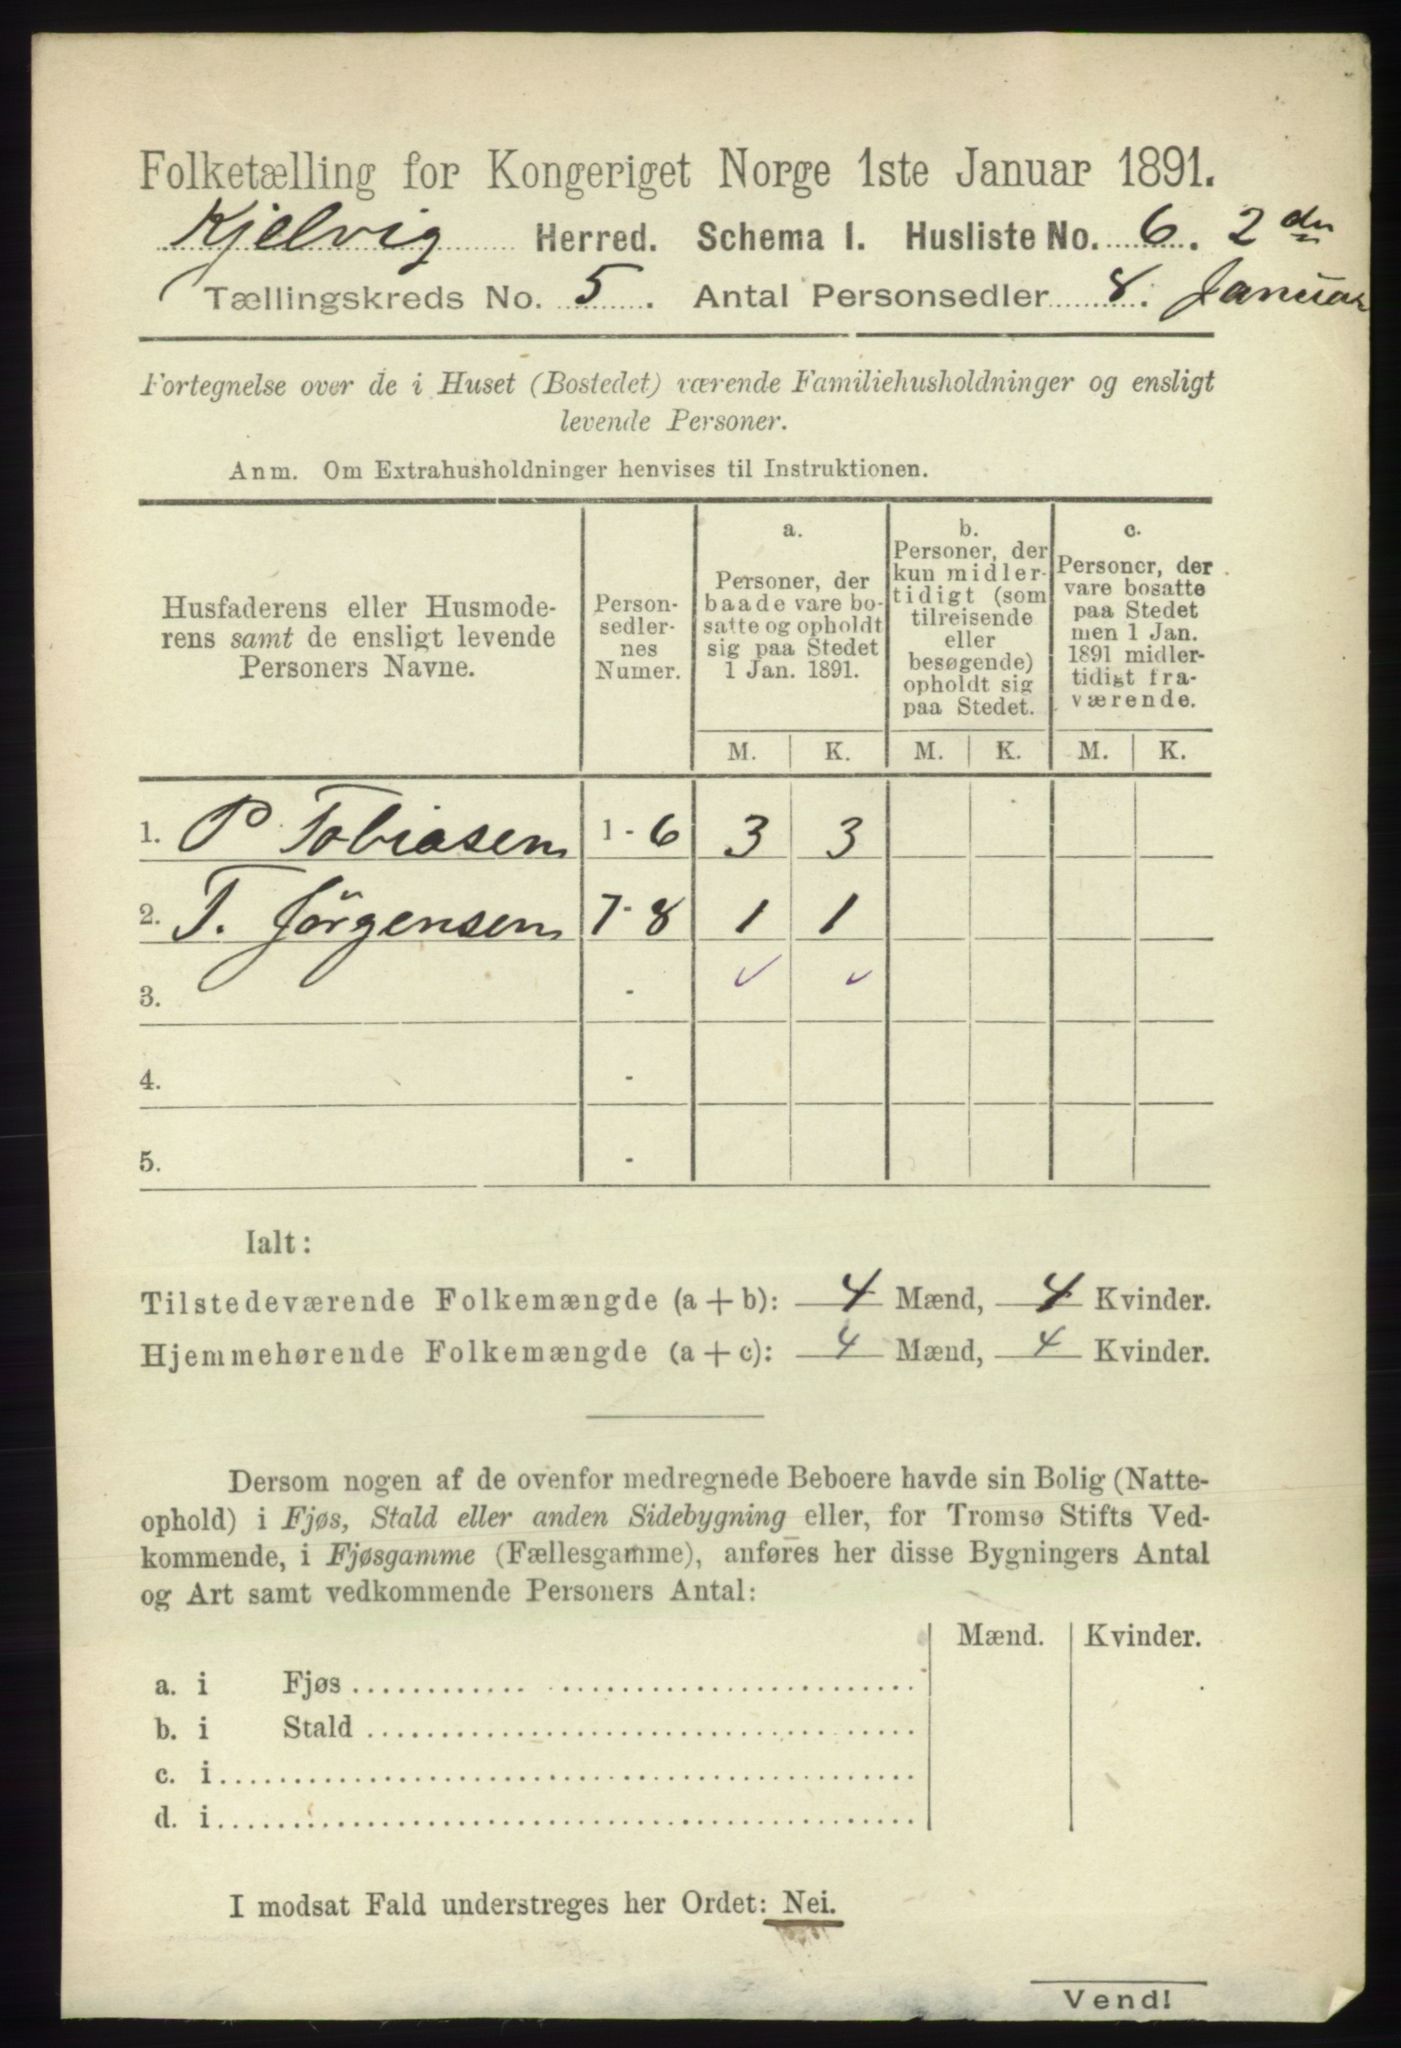 Folketælling for Kongeriget Norge 1ste Januar 1891.
Kjelvig Herred. Schema I. Husliste No. 6. 2den
Tællingskreds No. 5. Antal Personsedler 8. Januar
Fortegnelse over de i Huset (Bostedet) værende Familiehusholdninger og ensligt
levende Personer.
Anm. Om Extrahusholdninger henvises til Instruktionen.
Husfaderens eller Husmode-
rens samt de ensligt levende
Personers Navne.
Person-
sedler-
nes
Numer.
a.
Personer, der
baade vare bo-
satte og opholdt
sig paa Stedet
1 Jan. 1891.
b.
Personer, der
kun midler-
tidigt (som
tilreisende
eller
besøgende)
opholdt sig
paa Stedet.
c.
Personer, der
vare bosatte
paa Stedet
men 1 Jan.
1891 midler-
tidigt fra-
værende.
M. K. M. K. M. K.
1. P Tobiasen 1-6 3 3
2. T. Jörgensen 7-8 1 1
3. - ✓ ✓
4. -
5. -
Ialt:
Tilstedeværende Folkemængde (a + b): 4 Mænd, 4 Kvinder.
Hjemmehørende Folkemængde (a + c): 4 Mænd, 4 Kvinder.
Dersom nogen af de ovenfor medregnede Beboere havde sin Bolig (Natte-
ophold) i Fjøs, Stald eller anden Sidebygning eller, for Tromsø Stifts Ved-
kommende, i Fjøsgamme (Fællesgamme), anføres her disse Bygningers Antal
og Art samt vedkommende Personers Antal:
Mænd. Kvinder.
a. i Fjøs
b. i Stald
c. i
d. i
I modsat Fald understreges her Ordet: Nei.
Vend!